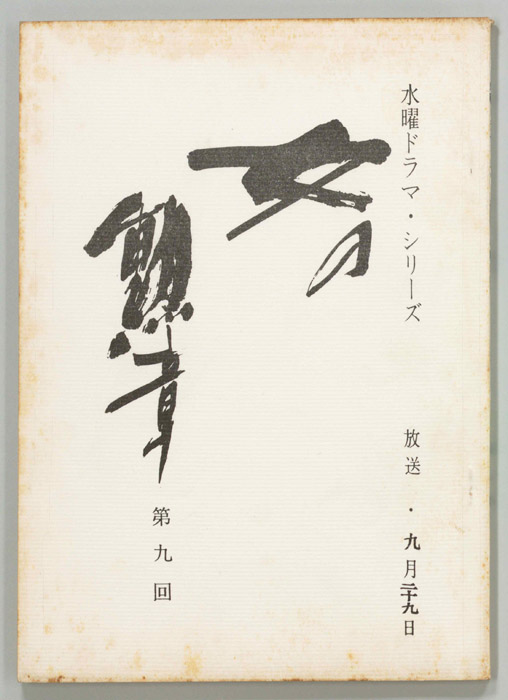 水曜ドラマ・シリーズ
放送・九月二十九日
女の
勲章
第九回